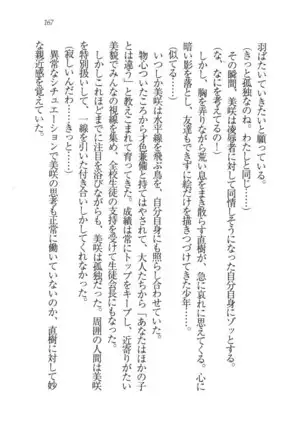 167
羽ばたいていきたいと願っている。
（きっと孤独なのね。わたしと同じ……）
その瞬間、美咲は陵辱者に対して同情しそうになった自分自身にゾッとする。
（な、なにを考えてるの！）
しかし、胸を弄りながら荒い息をまき散らす直樹が、急に哀れに思えてくる。心に
暗い影を落とし、友達もできずに絵だけを描きつづけてきた少年……。
（似てる……）
いつしか美咲は水平線を飛ぶ鳥を、自分自身にも照らし合わせていた。
物心ついたころから才色兼備ともてはやされて、大人たちから「あなたはほかの子
とは違う」と教えこまれて育ってきた。成績は常にトップをキープし、近寄りがたい
美貌でみんなの視線を集め、全校生徒の支持を受けて生徒会長にもなった。
しかしこれほどまでに注目を浴びながらも、美咲は孤独だった。周囲の人間は美咲
を特別扱いして、一線を引いた付き合いしかしてくれなかった。
（寂しいんだわ……きっと……）
異常なシチュエーションで美咲の思考も正常に働いていないのか、直樹に対して妙
な親近感を覚えていた。